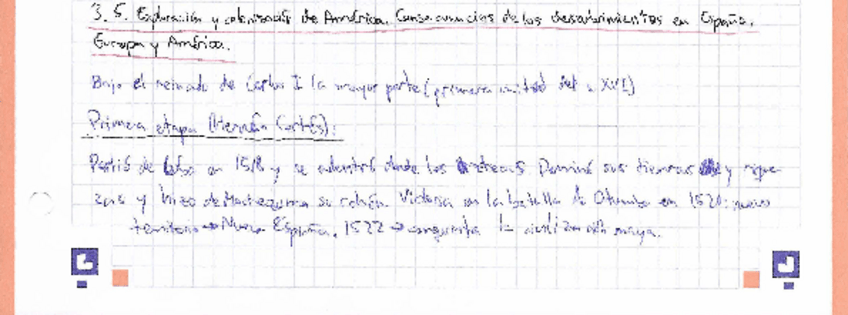 3.5. Exploración y colonización de América. Consecuencias de los descubrimientos en España,
Europa y América.
Bajo el reinado de Carlos I la mayor parte (primera mitad del s XVI)
Primera etapa (Hernán Cortés):
Partió de Cuba en 1518 y se adentró donde los Dominó sus tierras y rique
zas y hizo de Moctezuma su rehén. Victoria en la batalla de Otumba en 1520: nuevo
territorio → Nueva España. 1522 → conquista la civilización maya.